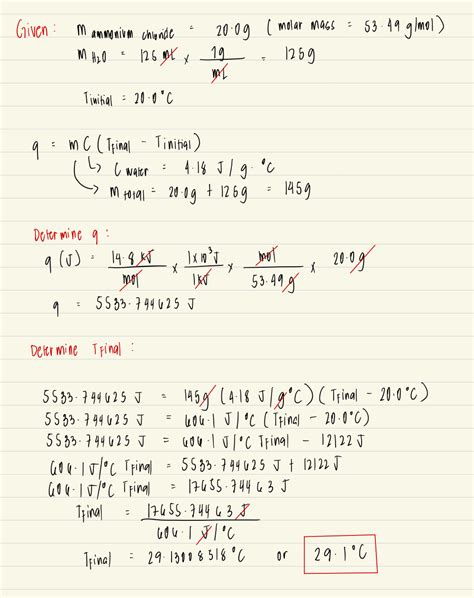 Given: m ammonium chloride = 20.0g (molar mass = 53.49 g/mol)
m H2O = 125 mL x 1g / mL = 125g
Tinitial = 20.0°C
q = mC (Tfinal - Tinitial)
C water = 4.18 J / g · °C
m total = 20.0g + 125g = 145g
Determine q:
q (J) = 14.8 kJ / mol x 1x10³J / 1kJ x mol / 53.49 g x 20.0g
q = 5533.744625 J
Determine Tfinal:
5533.744625 J = 145g (4.18 J/g°C) (Tfinal - 20.0°C)
5533.744625 J = 606.1 J/°C (Tfinal - 20.0°C)
5533.744625 J = 606.1 J/°C Tfinal - 12122 J
606.1 J/°C Tfinal = 5533.744625 J + 12122 J
606.1 J/°C Tfinal = 17655.74463 J
Tfinal = 17655.74463 J / 606.1 J/°C
Tfinal = 29.13008518°C or 29.1°C